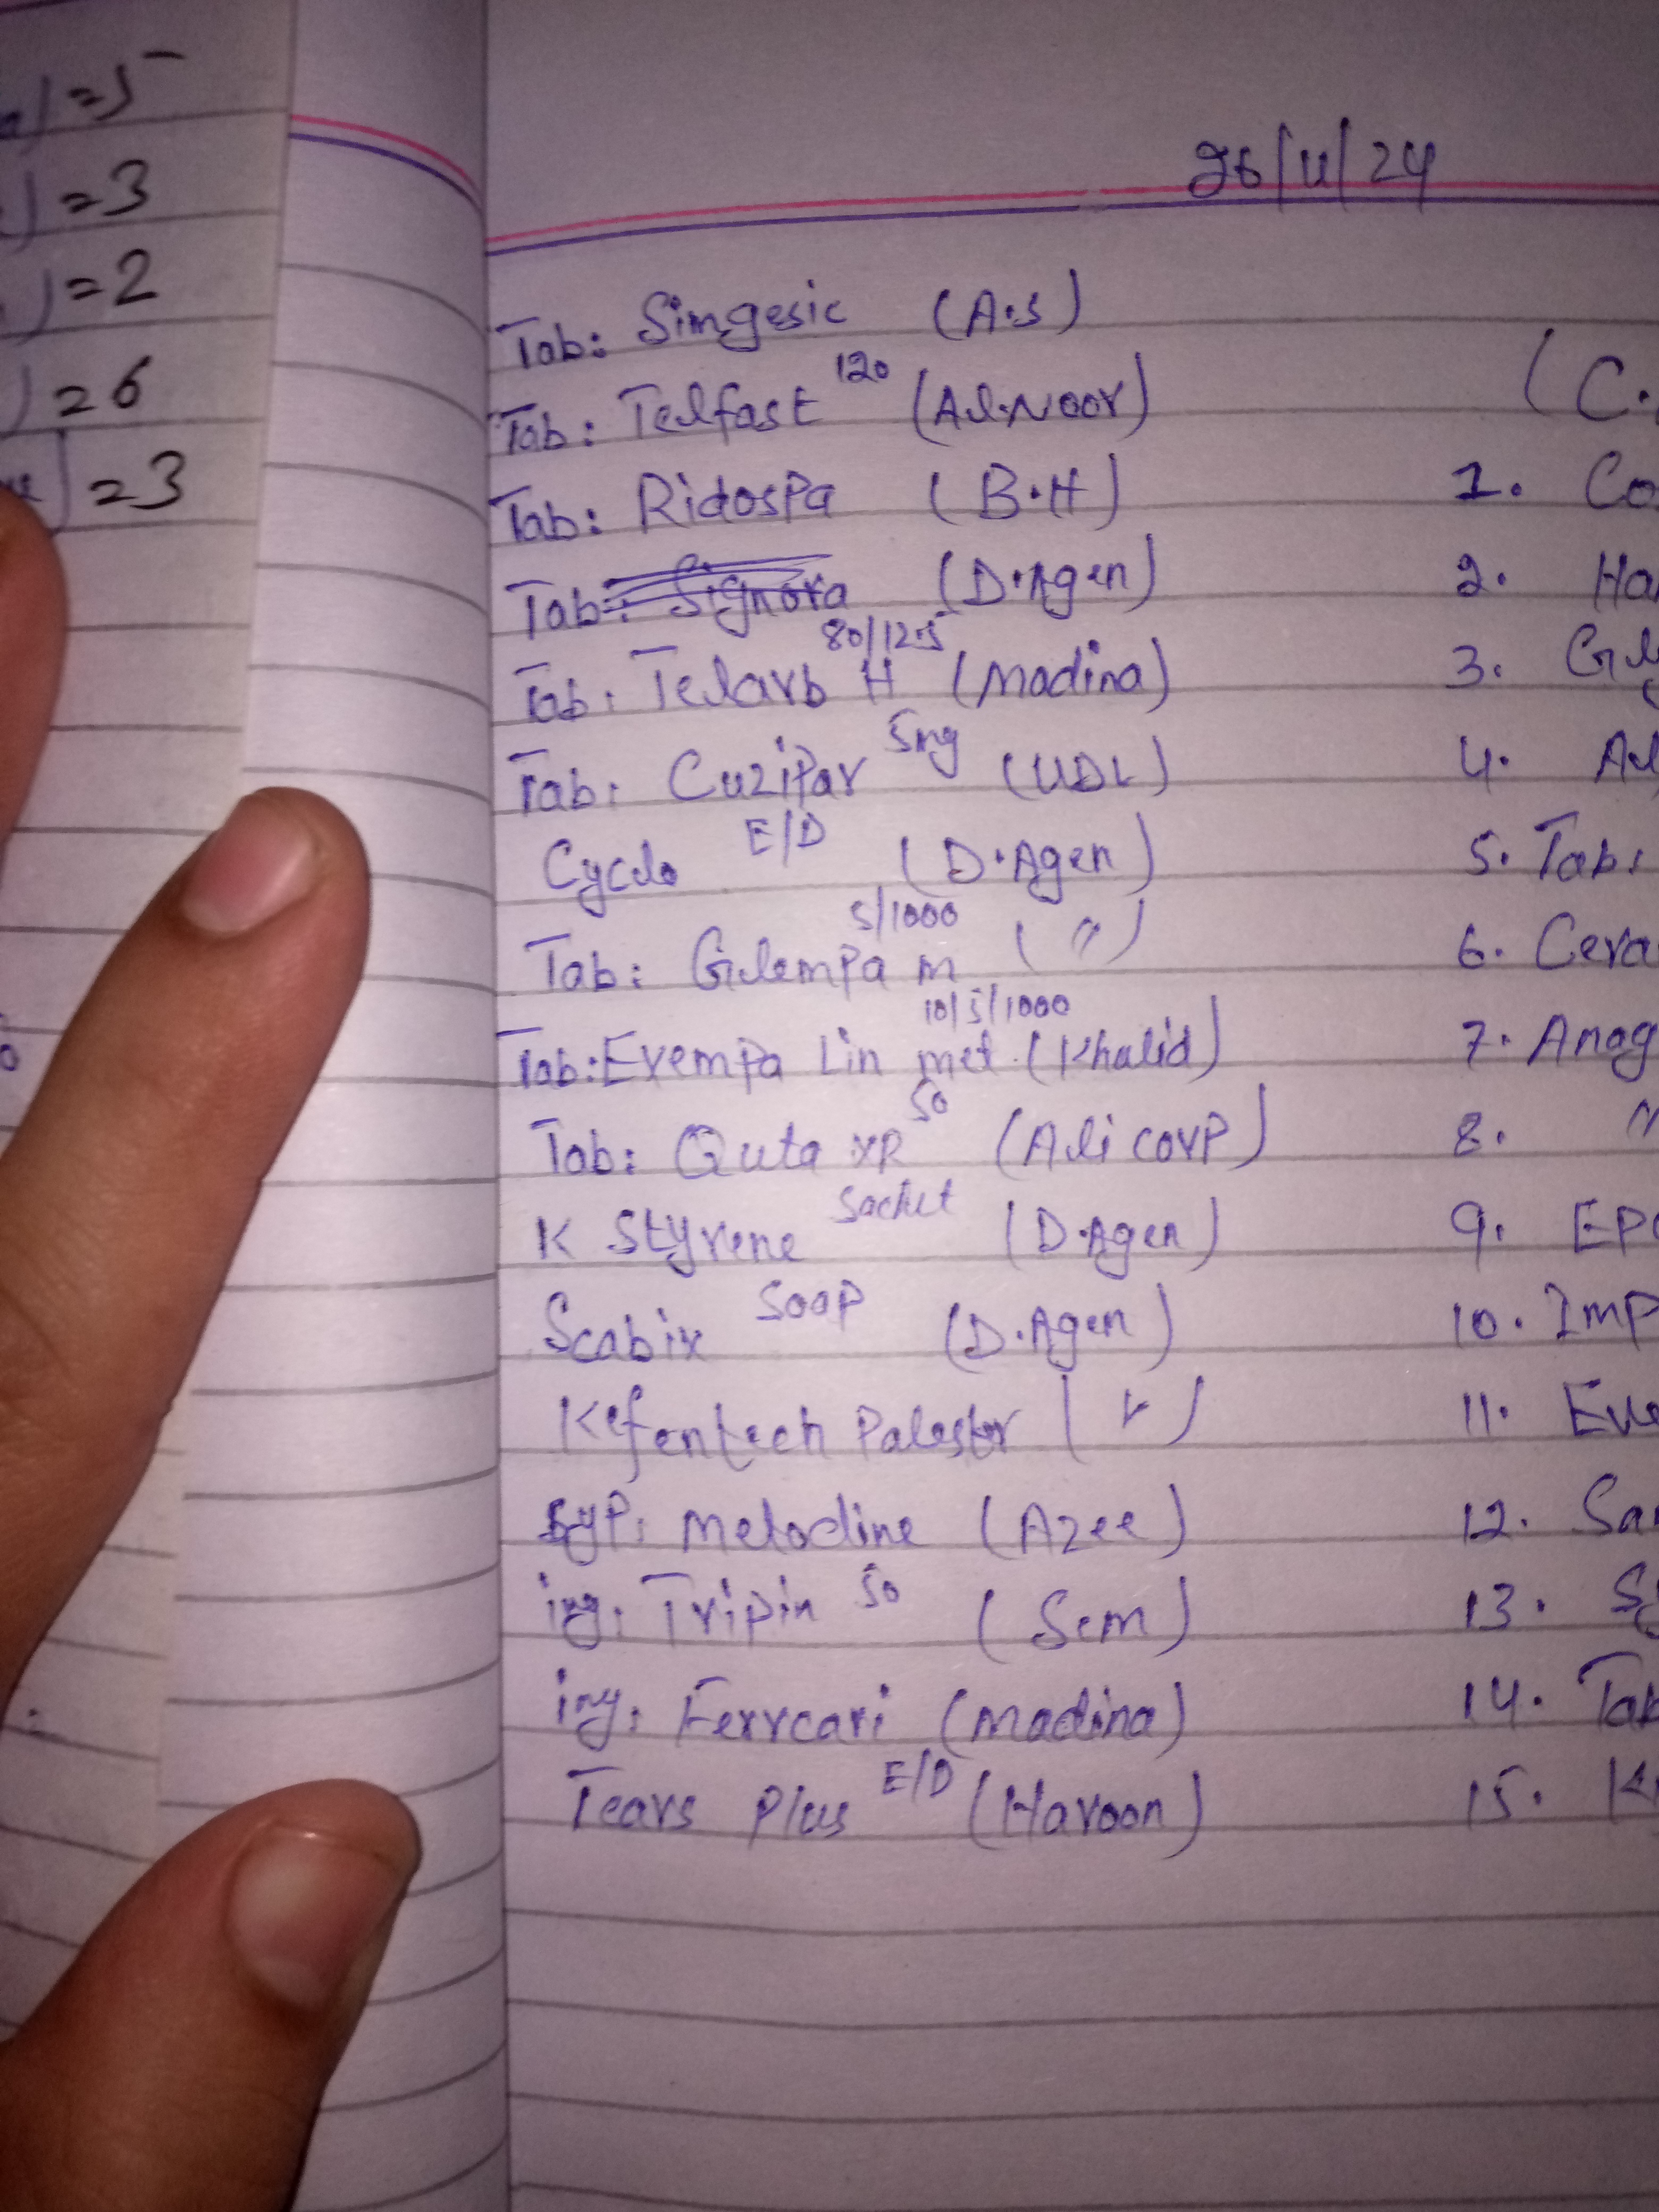 =5
=3
=2
=6
=3
26/11/24
Tab: Simgesic (A.S)
Tab: Telfast 120 (Al.Noor)
Tab: Ridospa (B.H)
Tab: Signora (D.Agen)
Tab: Telarb H 80/12.5 (Madina)
Tab: Cuzipar 5mg (UDL)
Cyclo E/D (D.Agen)
Tab: Gilempa m 5/1000 (")
Tab: Evempa Lin met 10/5/1000 (Khalid)
Tab: Quta XR 50 (Ali corp)
K Styrene Sachet (D.Agen)
Scabix Soap (D.Agen)
Kefentech Palaster
Syp: Melodine (Azee)
inj: Tripin 50 (Sem)
inj: Ferrcari (Madina)
Tears Plus E/D (Haroon)
(C.
1. Co
2. Ha
3.
4.
5. Tab:
6. Cera
7. Anog
8. "
9. EP
10. Imp
11. Eve
12. Sa
13. Sy
14. Tab
15. K